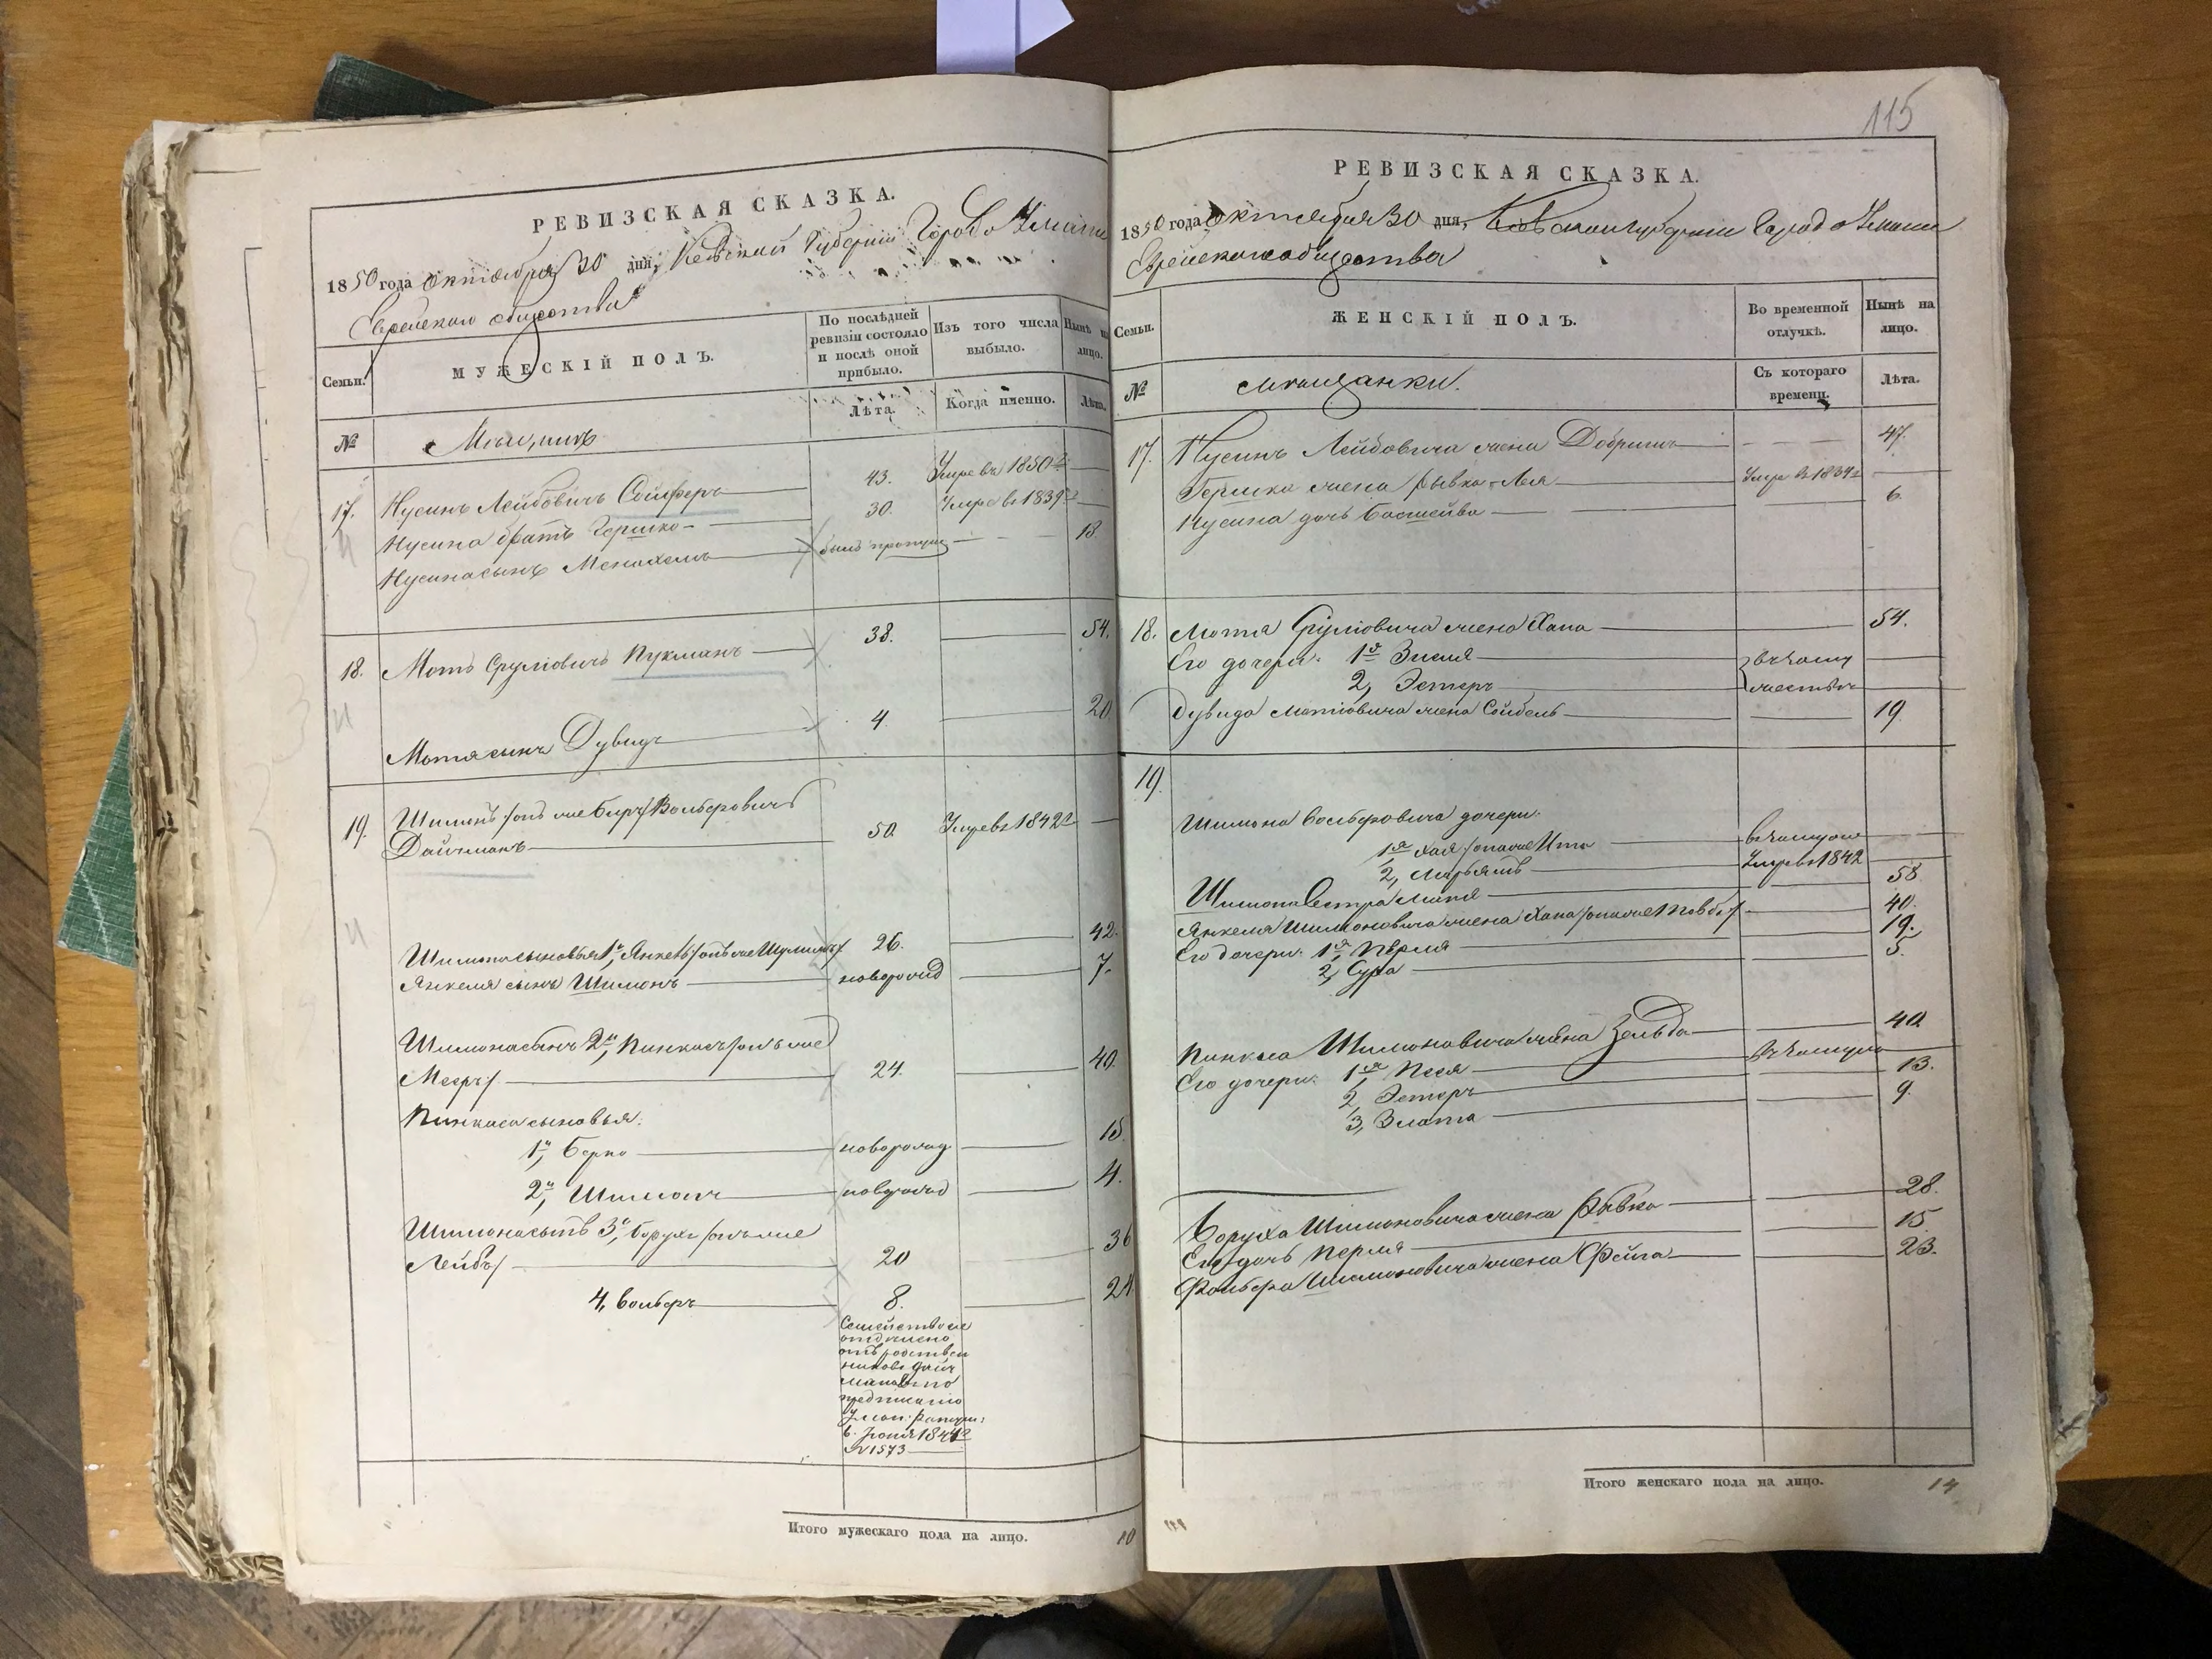 РЕВИЗСКАЯ СКАЗКА.
1850 года Октября 30 дня, Кіевской Губерніи Города Умани
Еврейскаго общества
Семьи.
МУЖЕСКІЙ ПОЛЪ.
По послѣдней ревизіи состояло и послѣ оной прибыло.
Изъ того числа выбыло.
Нынѣ на лицо.
№
Мѣщанъ
Лѣта.
Когда именно.
Лѣта.
17. Нусинъ Лейбовичъ Сойферъ 43. Умре въ 1850
Нусина братъ Гершко 30. Умре въ 1839
Нусина сынъ Менахемъ былъ пропущ 18.
18. Мотъ Сруліовичъ Пукманъ 38. 54.
Мотя сынъ Дувидъ 4. 20
19. Шимонъ /онъ же Беръ/ Вольфовичъ
Дайчманъ 50 Умре въ 1842
Шимона сыновья 1й, Янкель /онъ же Шулимъ/ 26. 42.
Янкеля сынъ Шимонъ новорожд 7.
Шимона сынъ 2й, Пинкасъ /онъ же
Мееръ/ 24. 40.
Пинкаса сыновья:
1й, Берко новорожд 15.
2й, Шимонъ новорожд 4.
Шимона сынъ 3й, Борухъ /онъ же
Лейбъ/ 20 36
4, Вольферъ 8. 24
Семейство сіе
отдѣлено
отъ родствен
никовъ Дайч
мановъ по
предписанію
Уман:
1844
№ 1573
Итого мужескаго пола на лицо. 10
115
РЕВИЗСКАЯ СКАЗКА.
1850 года Октября 30 дня, Кіевской Губерніи Города Умани
Еврейскаго общества
Семьи.
ЖЕНСКІЙ ПОЛЪ.
Во временной отлучкѣ.
Нынѣ на лицо.
№
мѣщанки.
Съ котораго времени.
Лѣта.
17. Нусинъ Лейбовича жена Добришъ 47.
Гершка жена Рывка-Лея Умре въ 1839
Нусина дочь Басшейва 6.
18. Мотя Сруліовича жена Хана 54.
Его дочери: 1я Зисля въ заму
2, Эстеръ жествѣ
Дувида Мотіовича жена Сойбель 19.
19.
Шимона Вольфровича дочери:
1я Хая /она же Ита въ замуж
2, Марьямъ Умре въ 1842
Шимона Сестра 58
Янкеля Шимоновича жена Хана /она же Товба/ 40.
Его дочери: 1я, Перля 19.
2, Сура 5.
Пинкаса Шимоновича жена Зельда 40
Его дочери: 1я Песя въ замуж
2, Эстеръ 13.
3, Злата 9.
Боруха Шимоновича жена Рывка 28.
Его дочь Перля 15
Вольфера Шимоновича жена Фейга 23.
Итого женскаго пола на лицо. 14